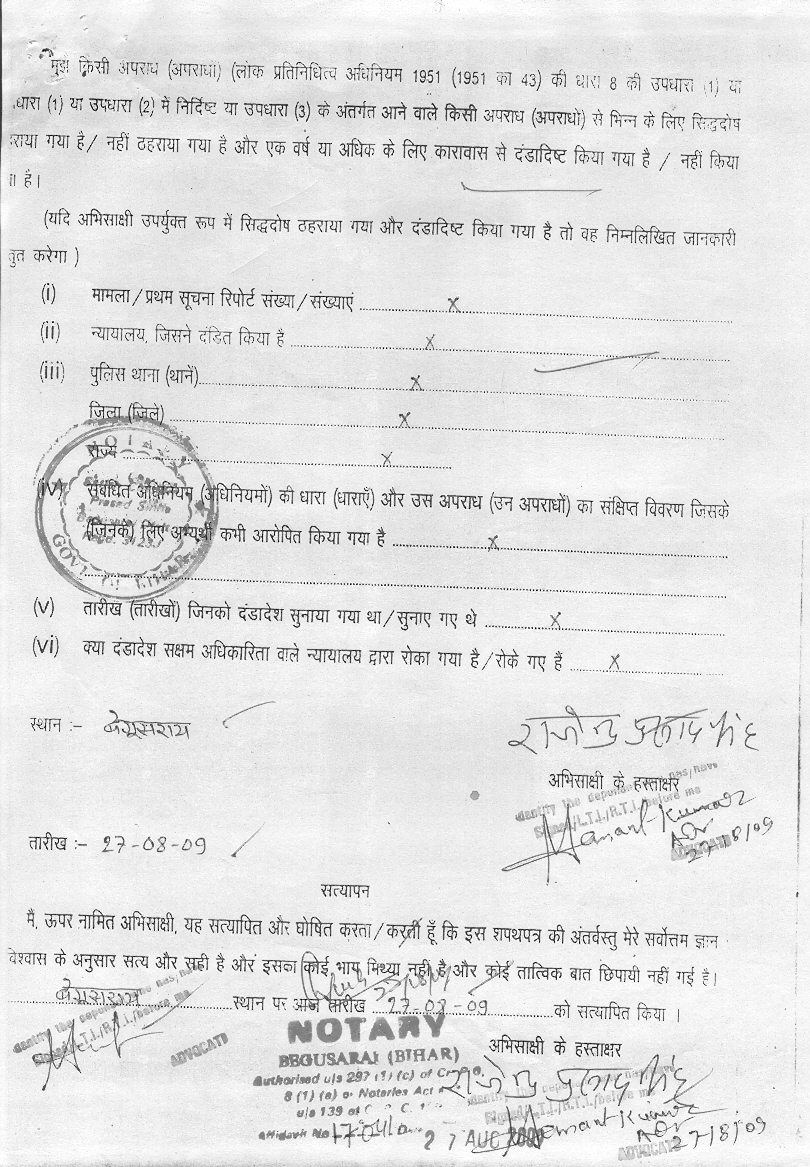 मुझे किसी अपराध (अपराधों) (लोक प्रतिनिधित्व अधिनियम 1951 (1951 का 43) की धारा 8 की उपधारा (1) या
धारा (1) या उपधारा (2) में निर्दिष्ट या उपधारा (3) के अंतर्गत आने वाले किसी अपराध (अपराधों) से भिन्न के लिए सिद्धदोष
राया गया है / नहीं ठहराया गया है और एक वर्ष या अधिक के लिए कारावास से दंडादिष्ट किया गया है / नहीं किया
ा है।
(यदि अभिसाक्षी उपर्युक्त रूप में सिद्धदोष ठहराया गया और दंडादिष्ट किया गया है तो वह निम्नलिखित जानकारी
तुत करेगा )
(i) मामला / प्रथम सूचना रिपोर्ट संख्या / संख्याएं ........ x
(ii) न्यायालय, जिसने दंडित किया है ........ x
(iii) पुलिस थाना (थानें) ........ x
जिला (जिले) ........ x
राज्य ........ x
(iv) संबंधित अधिनियम (अधिनियमों) की धारा (धाराएँ) और उस अपराध (उन अपराधों) का संक्षिप्त विवरण जिसके
(जिनके) लिए अभ्यर्थी कभी आरोपित किया गया है ........ x
(v) तारीख (तारीखों) जिनको दंडादेश सुनाया गया था / सुनाए गए थे ........ x
(vi) क्या दंडादेश सक्षम अधिकारिता वाले न्यायालय द्वारा रोका गया है / रोके गए हैं ........ x
NOTARY
GOVT. OF BIHAR
स्थान :- बेगूसराय
राजेन्द्र प्रसाद सिंह
अभिसाक्षी के हस्ताक्षर
Identify the deponent has/have
Signed/L.T.I./R.T.I./before me
Hemant Kumar
Adv
27/8/09
ADVOCATE
तारीख :- 27-08-09
सत्यापन
मैं, ऊपर नामित अभिसाक्षी, यह सत्यापित और घोषित करता / करती हूँ कि इस शपथपत्र की अंतर्वस्तु मेरे सर्वोत्तम ज्ञान
विश्वास के अनुसार सत्य और सही है और इसका कोई भाग मिथ्या नहीं है और कोई तात्विक बात छिपायी नहीं गई है।
बेगूसराय ........ स्थान पर आज तारीख 27-08-09 ........ को सत्यापित किया ।
Identify the deponent has/have
Signed/L.T.I./R.T.I./before me
ADVOCATE
NOTARY
BEGUSARAI (BIHAR)
Authorised u/s 297 (1) (c) of Cr.
8 (1) (e) o Notaries Act
u/s 139 of
Affidavit No
27 AUG 2009
अभिसाक्षी के हस्ताक्षर
राजेन्द्र प्रसाद सिंह
Signed/L.T.I./R.T.I./before me
Hemant Kumar
Adv
27/8/09
ADVOCATE